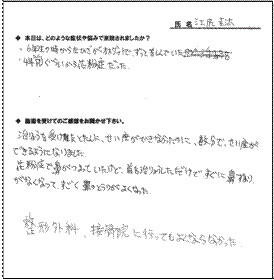 氏名
◆ 本日は、どのような症状や悩みで来院されましたか？
・6年生の時から左ひざが
ずっと悩んでいた
・4年前ぐらいから花粉症だった。
◆ 施術を受けてのご感想をお聞かせ下さい。
治療を受けたとたんに、せい座ができなかったのに、数分で、せい座が
できるようになりました。
花粉症で鼻がつまっていたけど、首も治りょうしただけで、すぐに鼻づまり
がなくなって、すごく鼻のとうりがよくなった。
整形外科、接骨院に行ってもよくならなかった